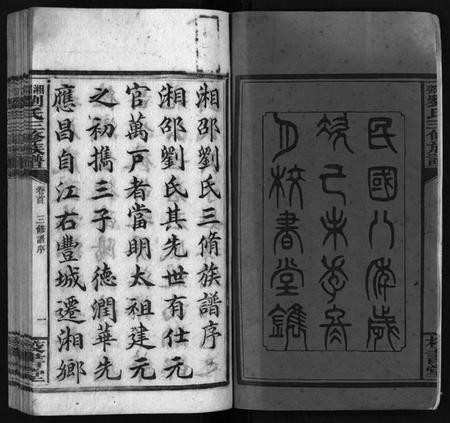 劉氏三修族譜
校書堂
民國八年歲
次己未季冬
月校書堂鐫
湘邵劉氏三脩族譜序
湘邵劉氏其先世有仕元
官萬戶者當明太祖建元
之初攜三子 德潤華先
應昌自江右豐城遷湘鄉
湘劉氏三修族譜
卷首 三修譜序
一
校書堂